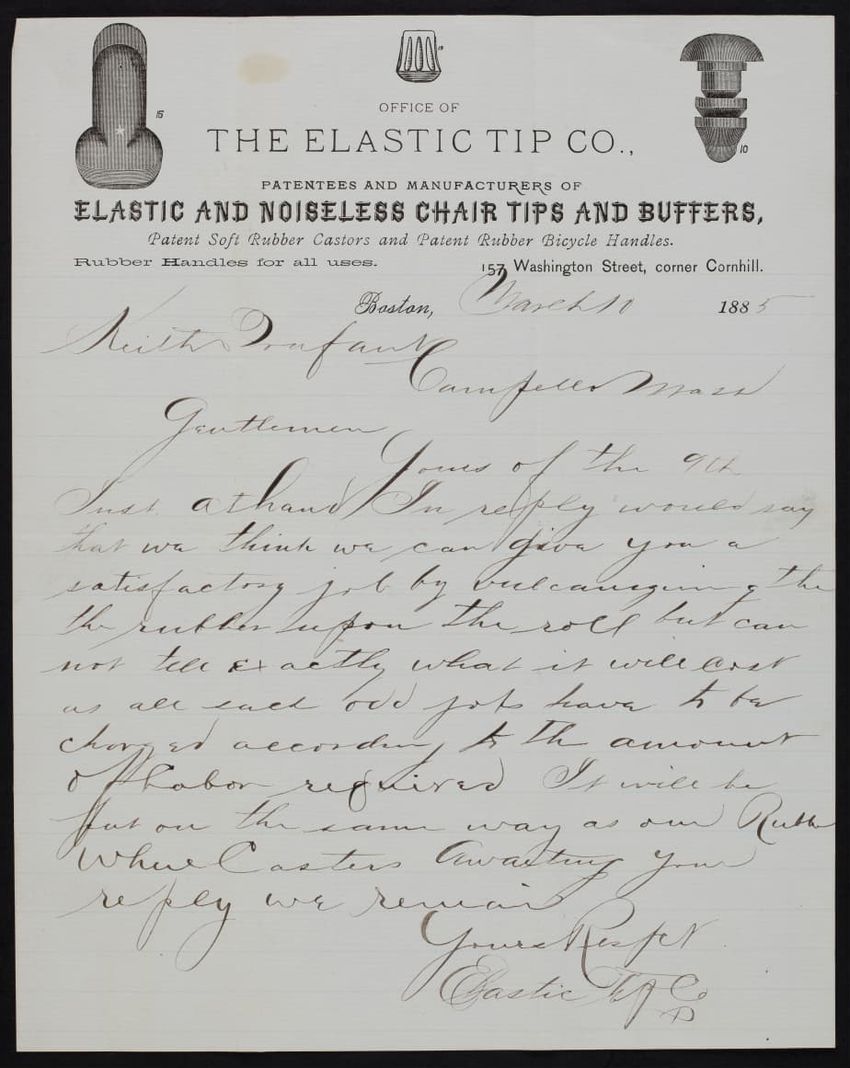 15
10
OFFICE OF
THE ELASTIC TIP CO.,
PATENTEES AND MANUFACTURERS OF
ELASTIC AND NOISELESS CHAIR TIPS AND BUFFERS,
Patent Soft Rubber Castors and Patent Rubber Bicycle Handles.
Rubber Handles for all uses. 157 Washington Street, corner Cornhill.
Boston, March 10 1885
Keith
Campello Mass
Gentlemen
Yours of the 9th
Just at hand In reply would say
that we think we can give you a
satisfactory job by vulcanizing the
the rubber upon the roll but can
not tell exactly what it will cost
as all such odd jobs have to be
charged according to the amount
of labor required It will be
put on the same way as our Rubber
Wheel Casters Awaiting your
reply we remain
Yours Respct
Elastic Tip Co